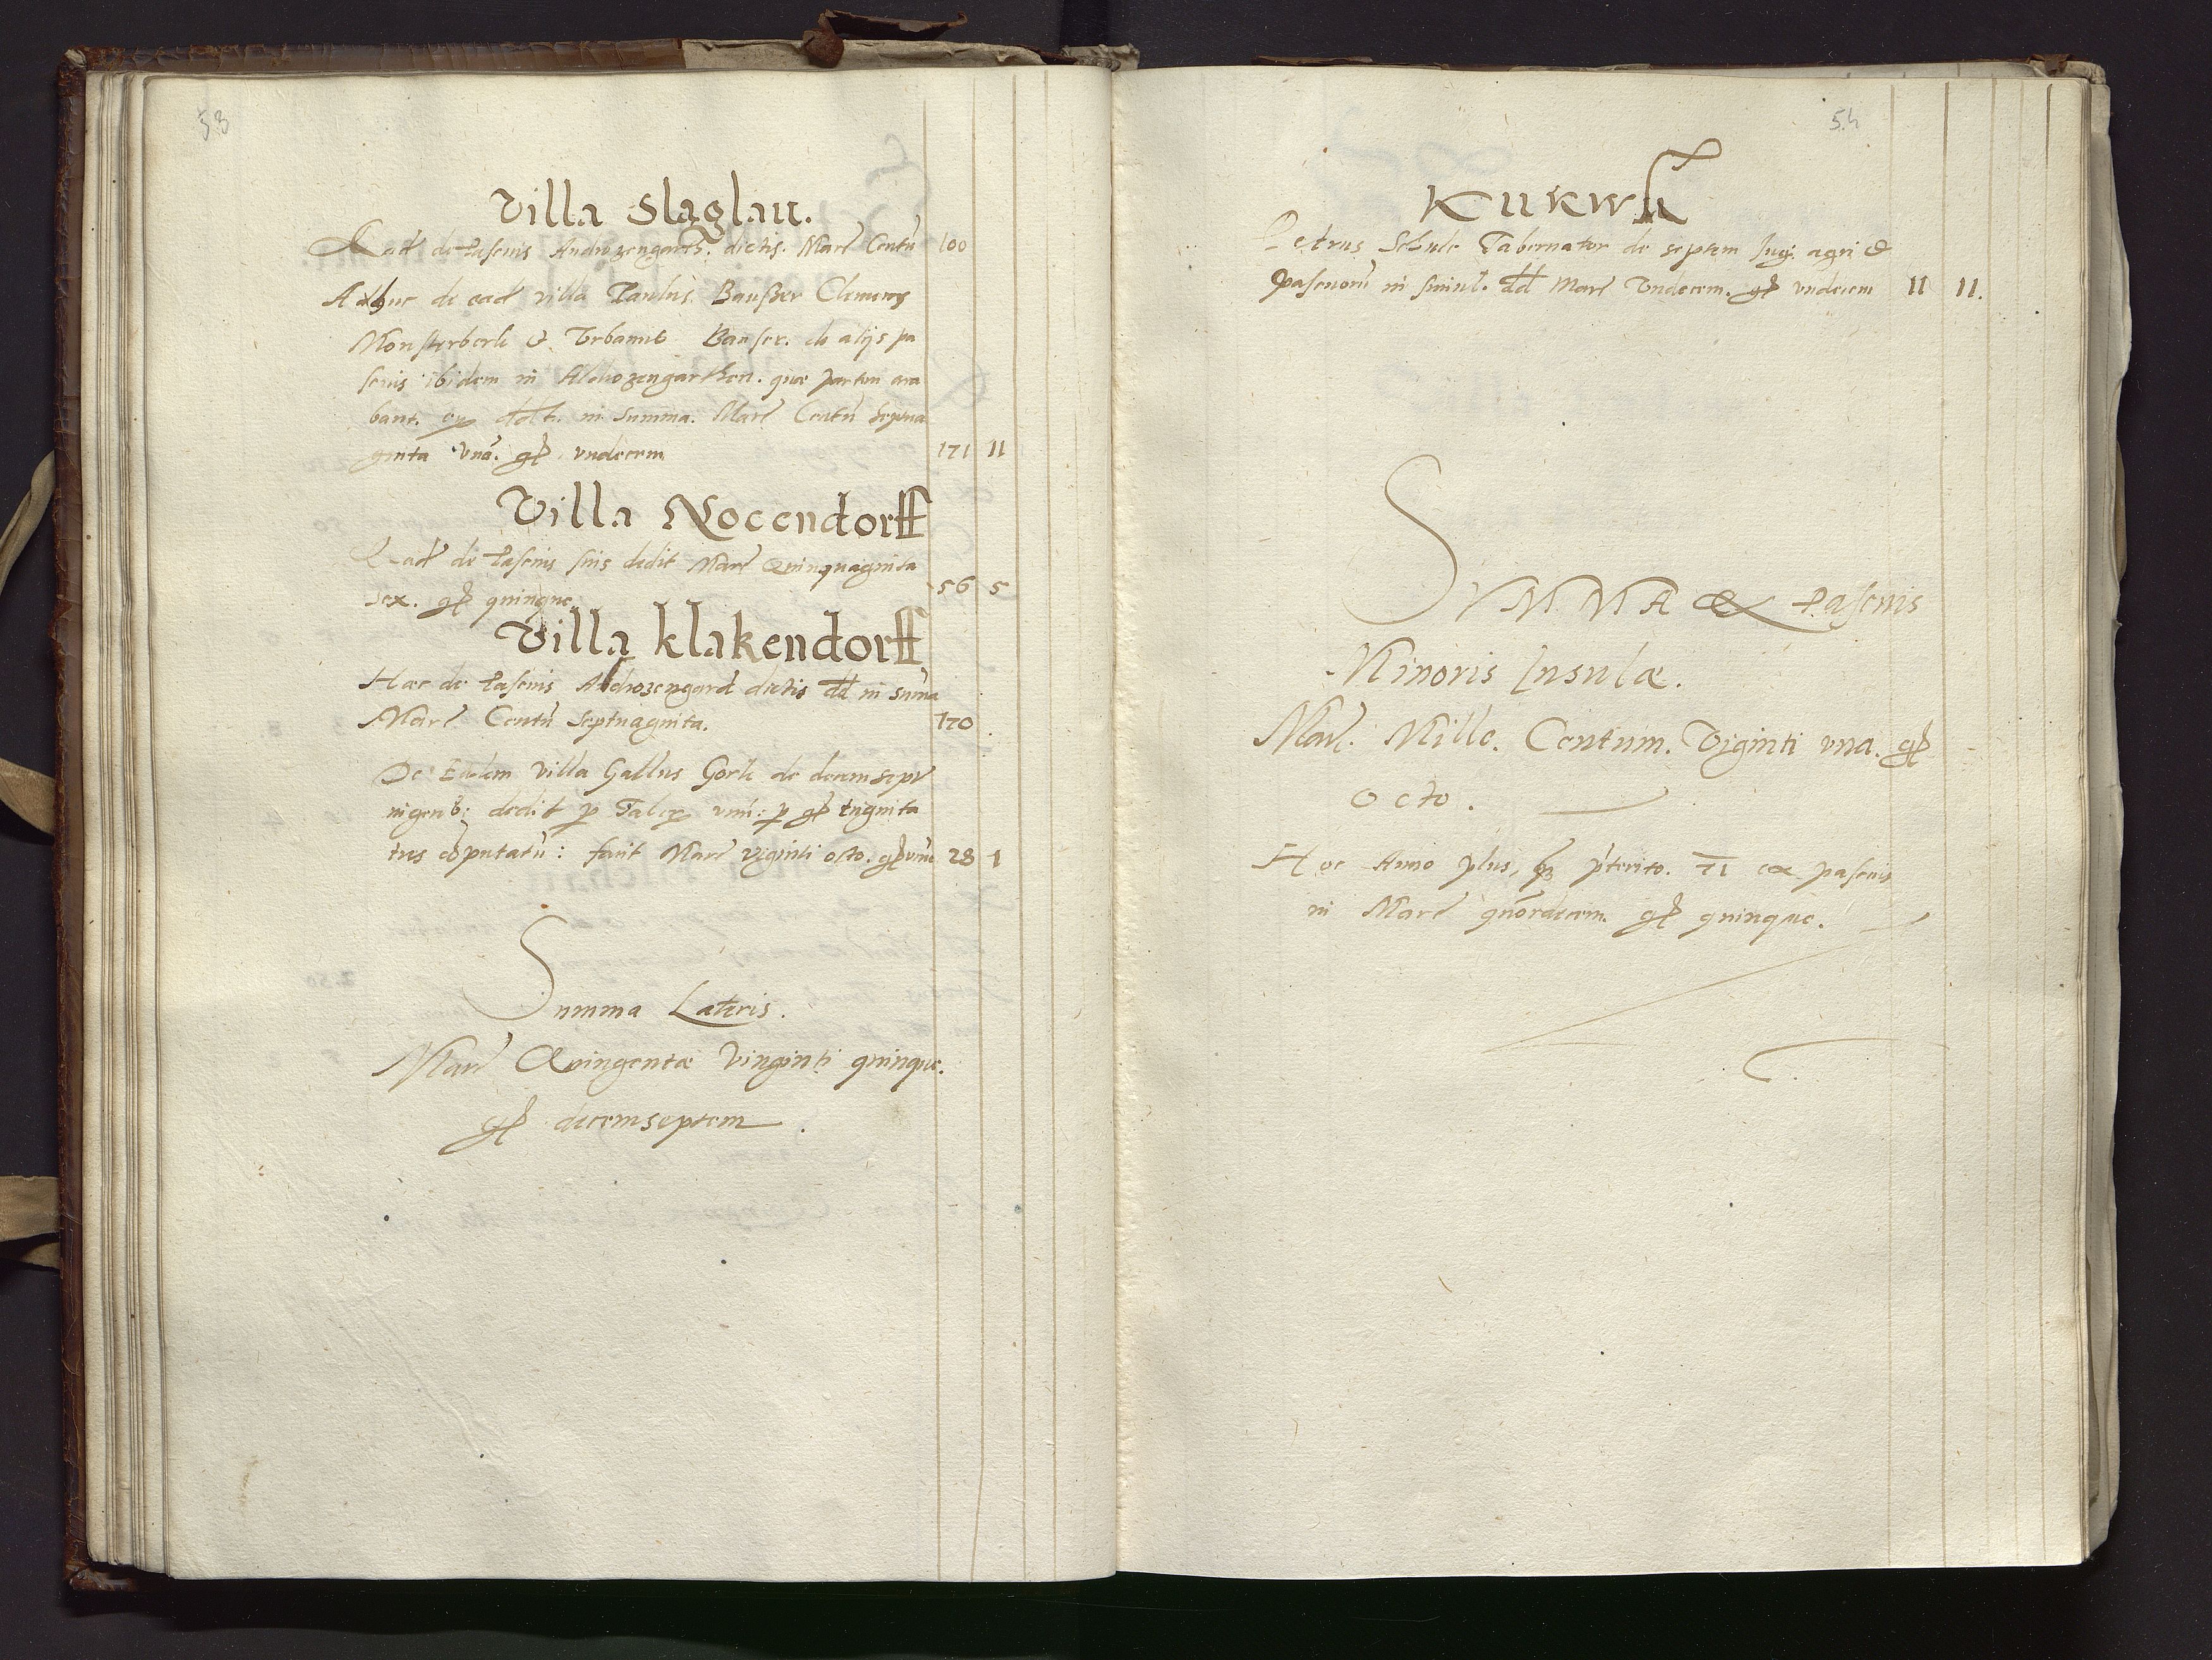 53
Villa Slaglau.
Ead de Pascuis Andwzengarth. dictis. Marc Centū 100
Adhuc de ead villa Paulus Baußer Clemens
Monsterberk & Vrbanus Banser. de alijs pa
scuis ibidem in Aldwzengarthen. quæ partim ara
bant. ddt. in Summa. Marc Centū Septua
ginta vnā. gr undecem 171 11
Villa Nocendorff
Ead de Pascuis suis dedit Marc Quinquaginta
sex. gr quinque. 56 5
Villa klakendorff
Hæc de Pascuis Aldwzengard dictis dd in sūma
Marc Centū Septuaginta. 170
De Eadem villa Gallus Gork de decemsept
iugerib: dedit p Taler vnū: p gr triginta
tres cōputatū: facit Marc viginti octo. gr vnū 28 1
Summa Lateris.
Marc Quingentæ Vinginti quinque.
gr decemseptem.
54
Petrus Schule Tabernator de septem Jug. agri &
pascuorū in simul. dd Marc Vndecem. gr vndecem 11 11.
SVMMA ex Pascuis
Minoris Insulæ.
Marc. Mille. Centum. Viginti vna. gr
octo.
Hoc Anno plus, pterito. 71 ex pascuis
in Marc quordecem gr quinque.